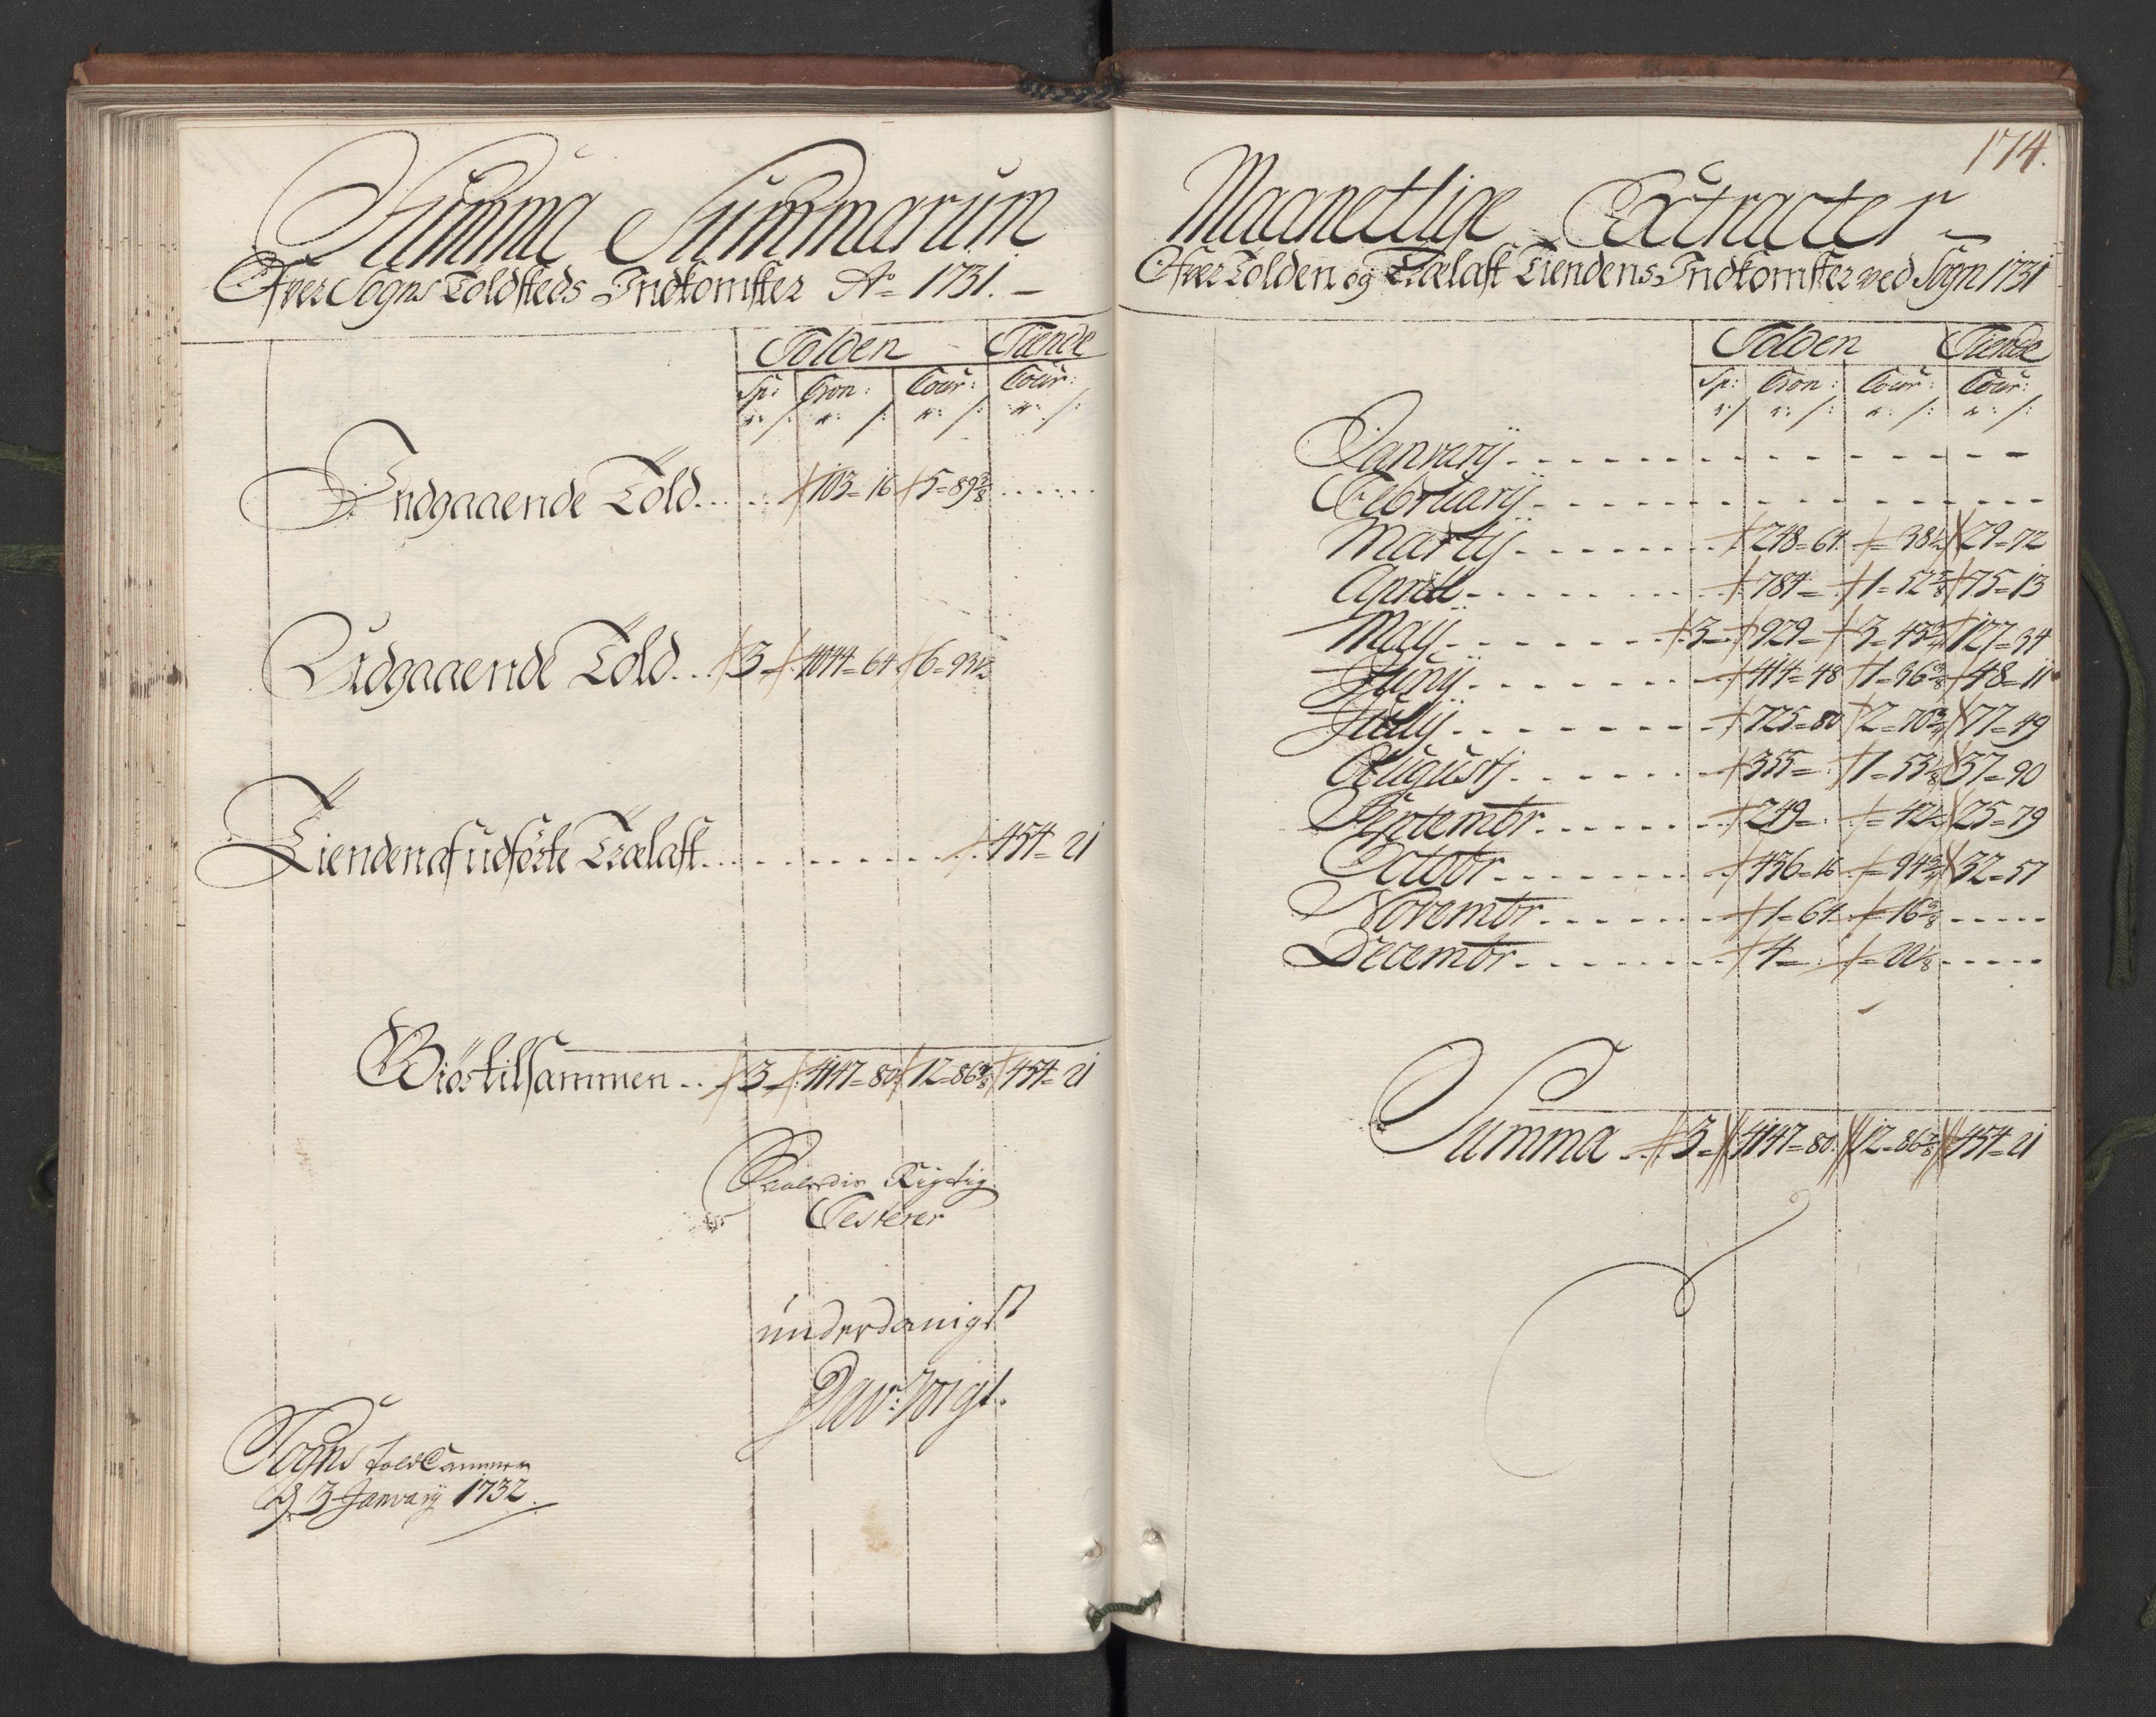 Summa Summarum
Ofver Sogns Toldsteds Indkomster Ao 1731.
Tolden Tiende
Sp: Cron: Cour: Cour:
r: /: r: /: r: /: r: /:
Indgaaende Told 103=16 5=89 3/8
Udgaaende Told 3 4044=64 6=93 1/2
Tienden af udførte Trælast 454=21
Giør tilsammen 3 4147=80 12=86 7/8 454=21
Rigtig
Testerer
underdanigst
Dav: Voigt.
Sogns Told Cammer
d. 3 Januarij 1732.
174.
Maanetlige Extracter
Ofver Tolden og Trælast Tiendens Indkomster ved Sogn 1731
Tolden Tiende
Sp: Cron: Cour: Cour:
r: /: r: /: r: /: r: /:
Januarij
Februarij
Martij 248=64 =38 1/2 29=72
Aprill 784= 1=52 5/8 75=13
Maij 3 929= 3=43 3/4 127=34
Junij 414=48 1=36 3/8 48=11
Julij 725=80 2=70 3/4 77=49
Augustj 355= 1=53 1/8 37=90
Septembr 249= =42 1/2 25=79
Octobr 436=16 =94 3/4 32=57
Novembr 1=64 =16 3/8
Decembr 4= =22 1/8
Summa 3= 4147=80 12=86 7/8 454=21